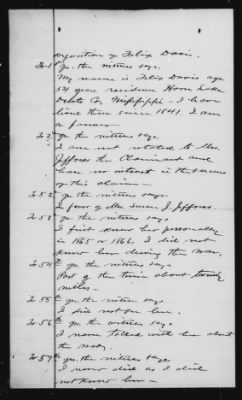 Deposition of Felix Davis.
To 1st qu. the witness says.
My name is Felix Davis age
54 years residence Horn Lake
Desoto Co Mississippi – I have
lived there since 1841. I am
a farmer
To 2d qu. the witness says.
I am not related to Mrs.
Jeffries the Claimant and
have no interest in the success
of this claim –
To 52d qu. the witness says.
I favor of Mrs Susan J. Jeffries
To 53d qu. the witness says
I first knew her personally
in 1865 or 1866. I did not
know her during the war.
To 54th qu. the witness says.
Part of the time about twenty
miles –
To 55th qu. the witness says
I did not see her.
To 56th qu. the witness says
I never talked with her about
the war.
To 57th qu. the witness says
I never did as I did
not know her –